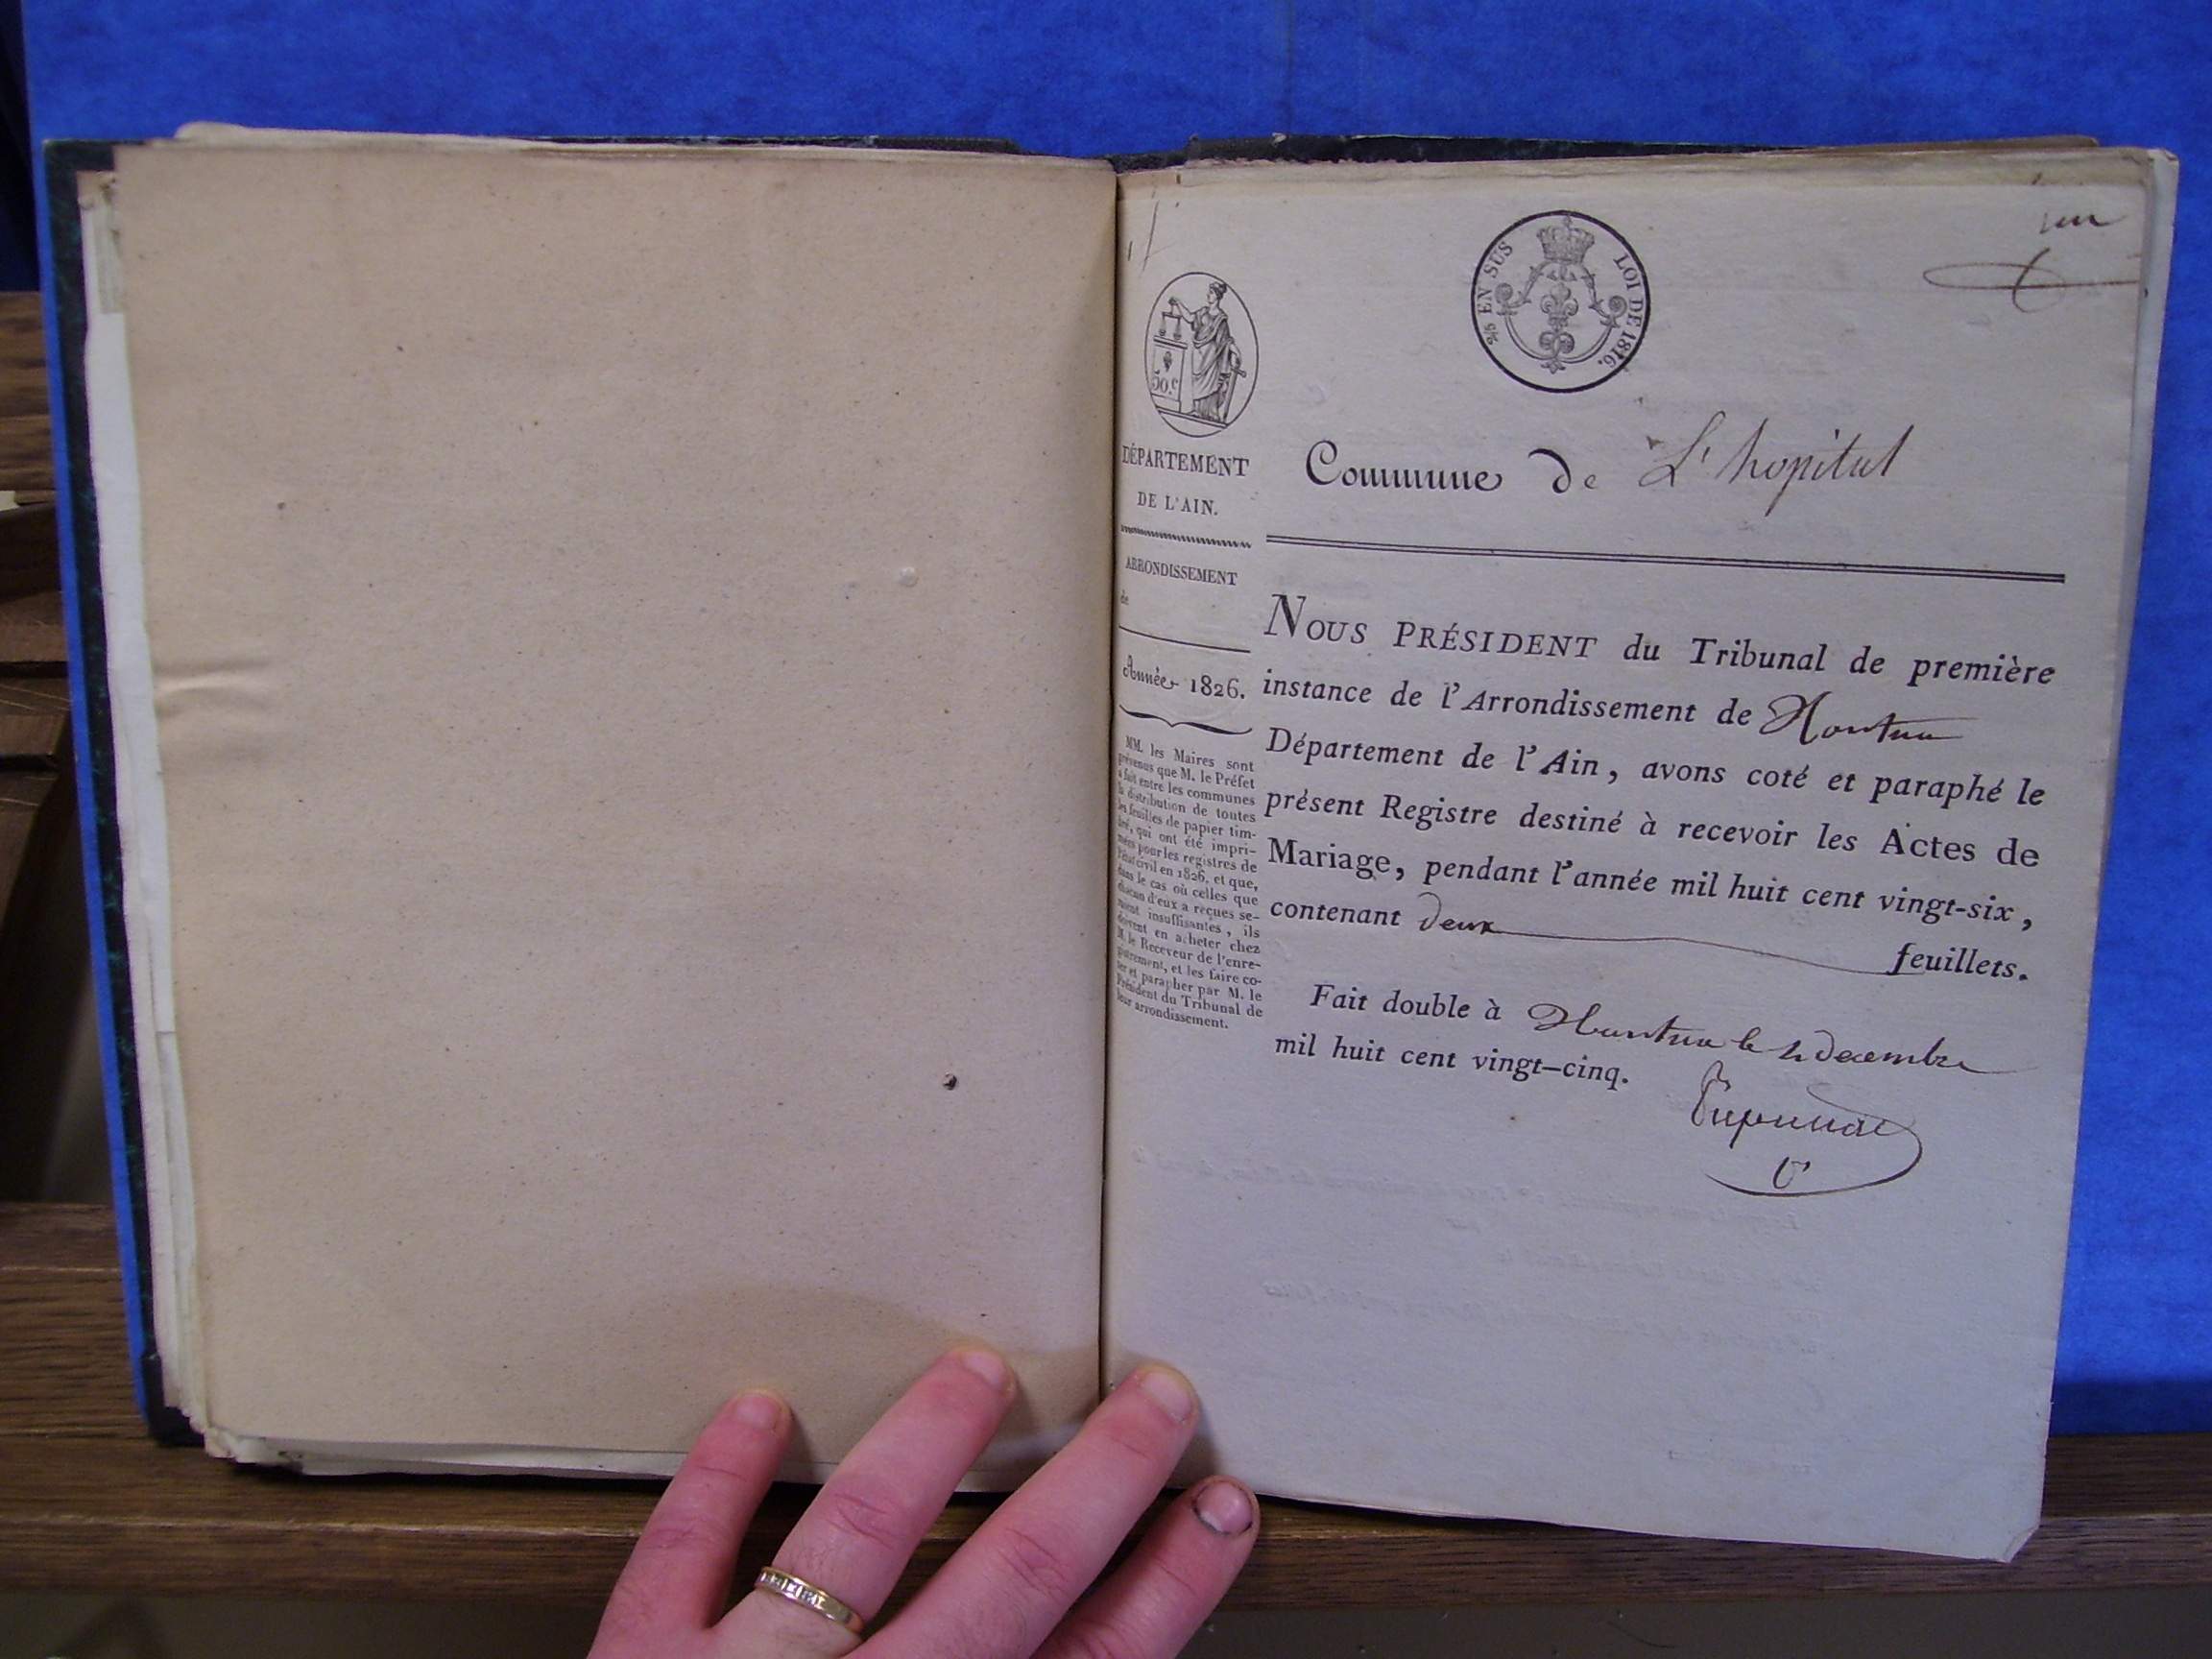 un
2/5 EN SUS LOI DE 1816.
50.c
DÉPARTEMENT
DE L'AIN.
ARRONDISSEMENT
de
Année 1826.
MM. les Maires sont
prévenus que M. le Préfet
a fait entre les communes
la distribution de toutes
les feuilles de papier tim-
bré, qui ont été impri-
mées pour les registres de
l'état civil en 1826, et que,
dans le cas où celles que
chacun d'eux a reçues se-
roient insuffisantes, ils
doivent en acheter chez
M. le Receveur de l'enre-
gistrement, et les faire co-
ter et parapher par M. le
Président du Tribunal de
leur arrondissement.
Commune de L'hopital
NOUS PRÉSIDENT du Tribunal de première
instance de l'Arrondissement de Nantua
Département de l'Ain, avons coté et paraphé le
présent Registre destiné à recevoir les Actes de
Mariage, pendant l'année mil huit cent vingt-six,
contenant deux feuillets.
Fait double à Nantua le 2 decembre
mil huit cent vingt-cinq.